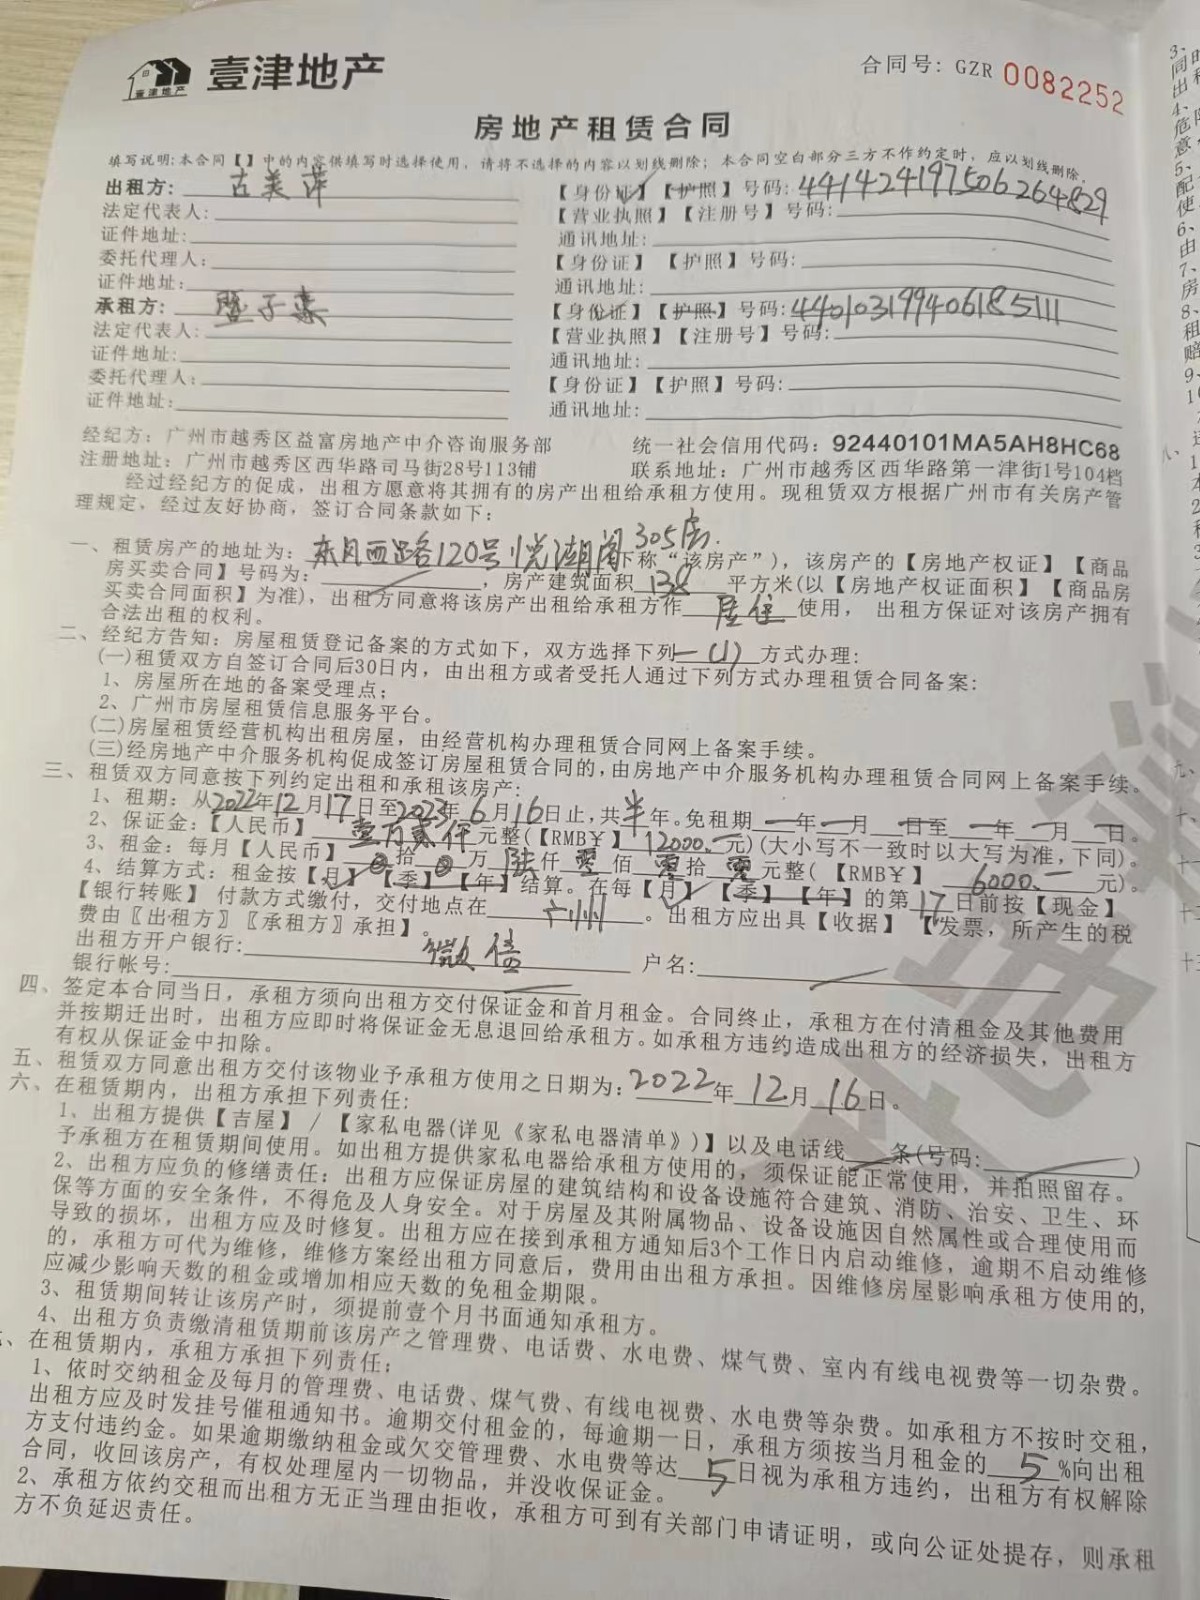 壹津地产
壹津地产
合同号: GZR 0082252
房地产租赁合同
填写说明:本合同【】中的内容供填写时选择使用，请将不选择的内容以划线删除；本合同空白部分三方不作约定时，应以划线删除。
出租方: 古美萍 【身份证】【护照】号码: 441424197506264829
法定代表人: 【营业执照】【注册号】号码:
证件地址: 通讯地址:
委托代理人: 【身份证】【护照】号码:
证件地址: 通讯地址:
承租方: 子 【身份证】【护照】号码: 440103199406185111
法定代表人: 【营业执照】【注册号】号码:
证件地址: 通讯地址:
委托代理人: 【身份证】【护照】号码:
证件地址: 通讯地址:
经纪方: 广州市越秀区益富房地产中介咨询服务部 统一社会信用代码: 92440101MA5AH8HC68
注册地址: 广州市越秀区西华路司马街28号113铺 联系地址: 广州市越秀区西华路第一津街1号104档
经过经纪方的促成，出租方愿意将其拥有的房产出租给承租方使用。现租赁双方根据广州市有关房产管
理规定，经过友好协商，签订合同条款如下:
一、租赁房产的地址为: 东风西路120号悦潮阁305房. 下称“该房产”)，该房产的【房地产权证】【商品
房买卖合同】号码为: ，房产建筑面积 138 平方米(以【房地产权证面积】【商品房
买卖合同面积】为准)，出租方同意将该房产出租给承租方作 居住 使用，出租方保证对该房产拥有
合法出租的权利。
二、经纪方告知: 房屋租赁登记备案的方式如下，双方选择下列 一(1) 方式办理:
(一)租赁双方自签订合同后30日内，由出租方或者受托人通过下列方式办理租赁合同备案:
1、房屋所在地的备案受理点；
2、广州市房屋租赁信息服务平台。
(二)房屋租赁经营机构出租房屋，由经营机构办理租赁合同网上备案手续。
(三)经房地产中介服务机构促成签订房屋租赁合同的,由房地产中介服务机构办理租赁合同网上备案手续。
三、租赁双方同意按下列约定出租和承租该房产:
1、租期: 从2022年12月17日至2023年6月16日止，共半年。免租期 一年一月一日至一年一月一日。
2、保证金:【人民币】 壹万贰仟 元整(【RMB¥】 12000.一 元)(大小写不一致时以大写为准,下同)。
3、租金: 每月【人民币】 0 拾 0 万 陆 仟 零 佰 零 拾 零 元整( 【RMB¥】 6000.一 元)。
4、结算方式: 租金按【月】【季】【年】结算。在每【月】【季】【年】的第17日前按【现金】
【银行转账】付款方式缴付，交付地点在 广州 。出租方应出具【收据】【发票，所产生的税
费由〖出租方〗〖承租方〗承担】。
出租方开户银行: 微信 户名:
银行帐号:
四、签定本合同当日，承租方须向出租方交付保证金和首月租金。合同终止，承租方在付清租金及其他费用
并按期迁出时，出租方应即时将保证金无息退回给承租方。如承租方违约造成出租方的经济损失，出租方
有权从保证金中扣除。
五、租赁双方同意出租方交付该物业予承租方使用之日期为: 2022年12月16日。
六、在租赁期内，出租方承担下列责任:
1、出租方提供【吉屋】/【家私电器(详见《家私电器清单》)】以及电话线 条(号码: )
予承租方在租赁期间使用。如出租方提供家私电器给承租方使用的，须保证能正常使用，并拍照留存。
2、出租方应负的修缮责任: 出租方应保证房屋的建筑结构和设备设施符合建筑、消防、治安、卫生、环
保等方面的安全条件，不得危及人身安全。对于房屋及其附属物品、设备设施因自然属性或合理使用而
导致的损坏，出租方应及时修复。出租方应在接到承租方通知后3个工作日内启动维修，逾期不启动维修
的，承租方可代为维修，维修方案经出租方同意后，费用由出租方承担。因维修房屋影响承租方使用的，
应减少影响天数的租金或增加相应天数的免租金期限。
3、租赁期间转让该房产时，须提前壹个月书面通知承租方。
4、出租方负责缴清租赁期前该房产之管理费、电话费、水电费、煤气费、室内有线电视费等一切杂费。
、在租赁期内，承租方承担下列责任:
1、依时交纳租金及每月的管理费、电话费、煤气费、有线电视费、水电费等杂费。如承租方不按时交租，
出租方应及时发挂号催租通知书。逾期交付租金的，每逾期一日，承租方须按当月租金的 5 %向出租
方支付违约金。如果逾期缴纳租金或欠交管理费、水电费等达 5 日视为承租方违约，出租方有权解除
合同，收回该房产，有权处理屋内一切物品，并没收保证金。
2、承租方依约交租而出租方无正当理由拒收，承租方可到有关部门申请证明，或向公证处提存，则承租
方不负延迟责任。